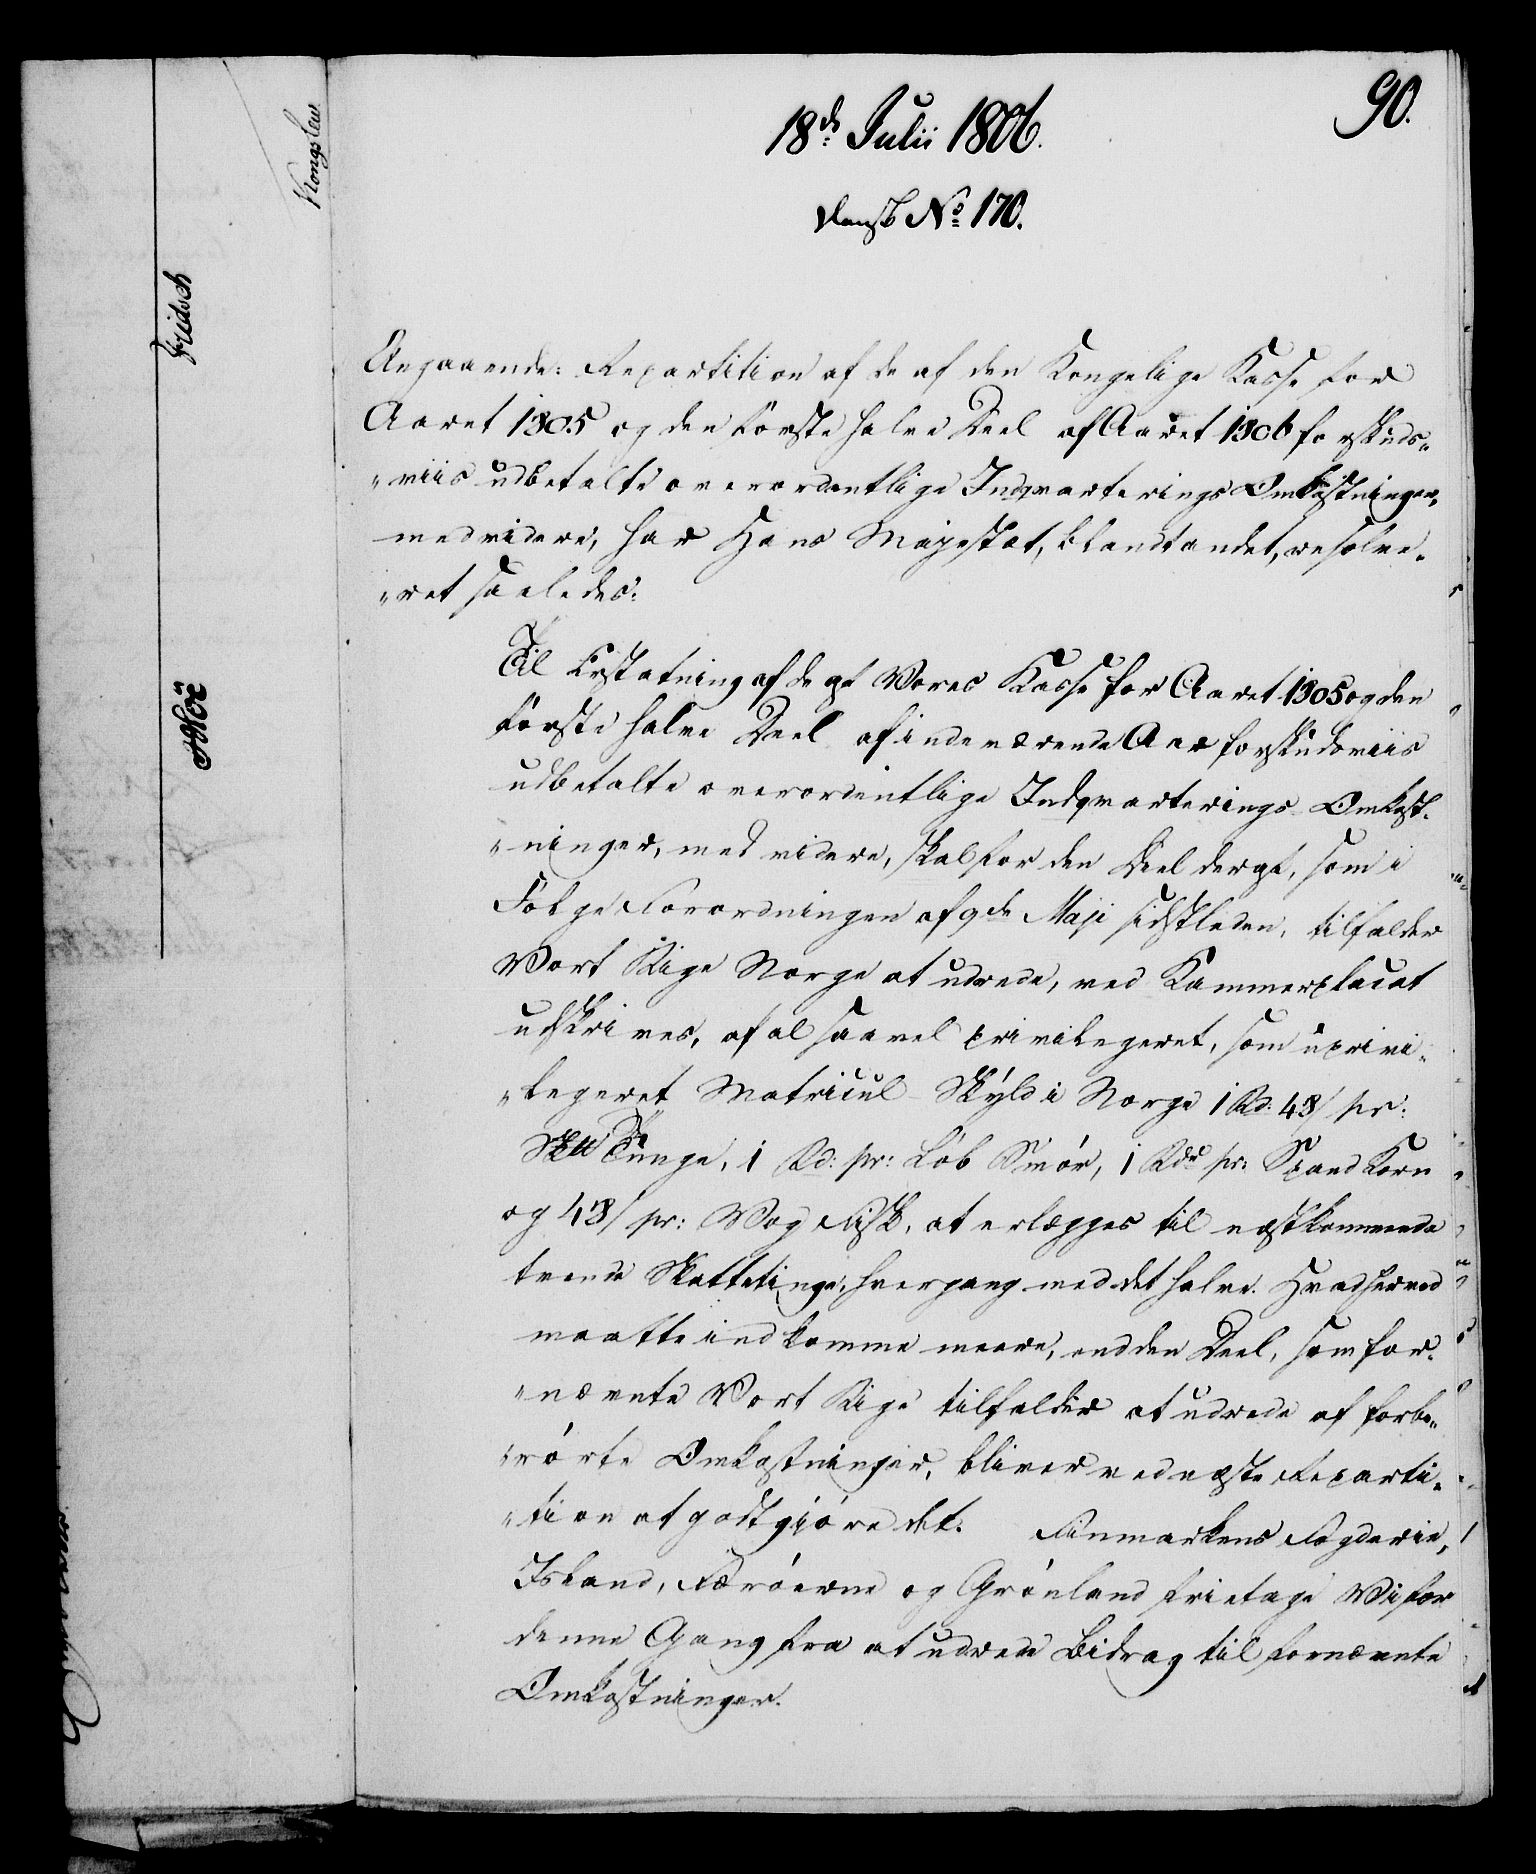 90.
18de Julii 1806.
Dansk No 170.
Kongslew
Fridsch
Höe
Angaaende: Repartition af de af den Kongelige Kasse for
Aaret 1805 og den første halve Deel af Aaret 1806 forskuds„
„viis udbetalte overordentlige Indqvarterings Omkostninger,
med videre, har Hans Majestæt, blandt andet, resolve„
„ret saaledes:
Til Erstatning af de af Vores Kasse for Aaret 1805 og den
første halve Deel af indeværende Aar forskudsviis
udbetalte overordentlige Indqvarterings Omkost„
„ninger, med videre, skal for den Deel deraf, som i
Følge Forordningen af 9de Maji sidstleden, tilfalder
Vort Rige Norge at udrede, ved Kammerplacat
udskrives, af al saavel privilegeret, som uprivi„
„legeret Matricul-Skyld i Norge 1 Rd: 48/ pr:
Skt Tunge, 1 Rd: pr: Løb Smør, 1 Rdr pr: Spand Korn
og 48/ pr: Vog Fisk, at erlægges til næstkommende
tvende Skattetinge, hvergang med det halve. Hvad herved
maatte indkomme meere, end den Deel, som for„
„nævnte Vort Rige tilfalder at udrede af forbe„
„rørte Omkostninger, bliver ved næste Reparti„
„tion at godtgiøre det. Finmarkens Fogderie,
Island, Færøerne og Grønland fritage Vi for
denne Gang fra at udrede Bidrag til fornævnte
Omkostninger.